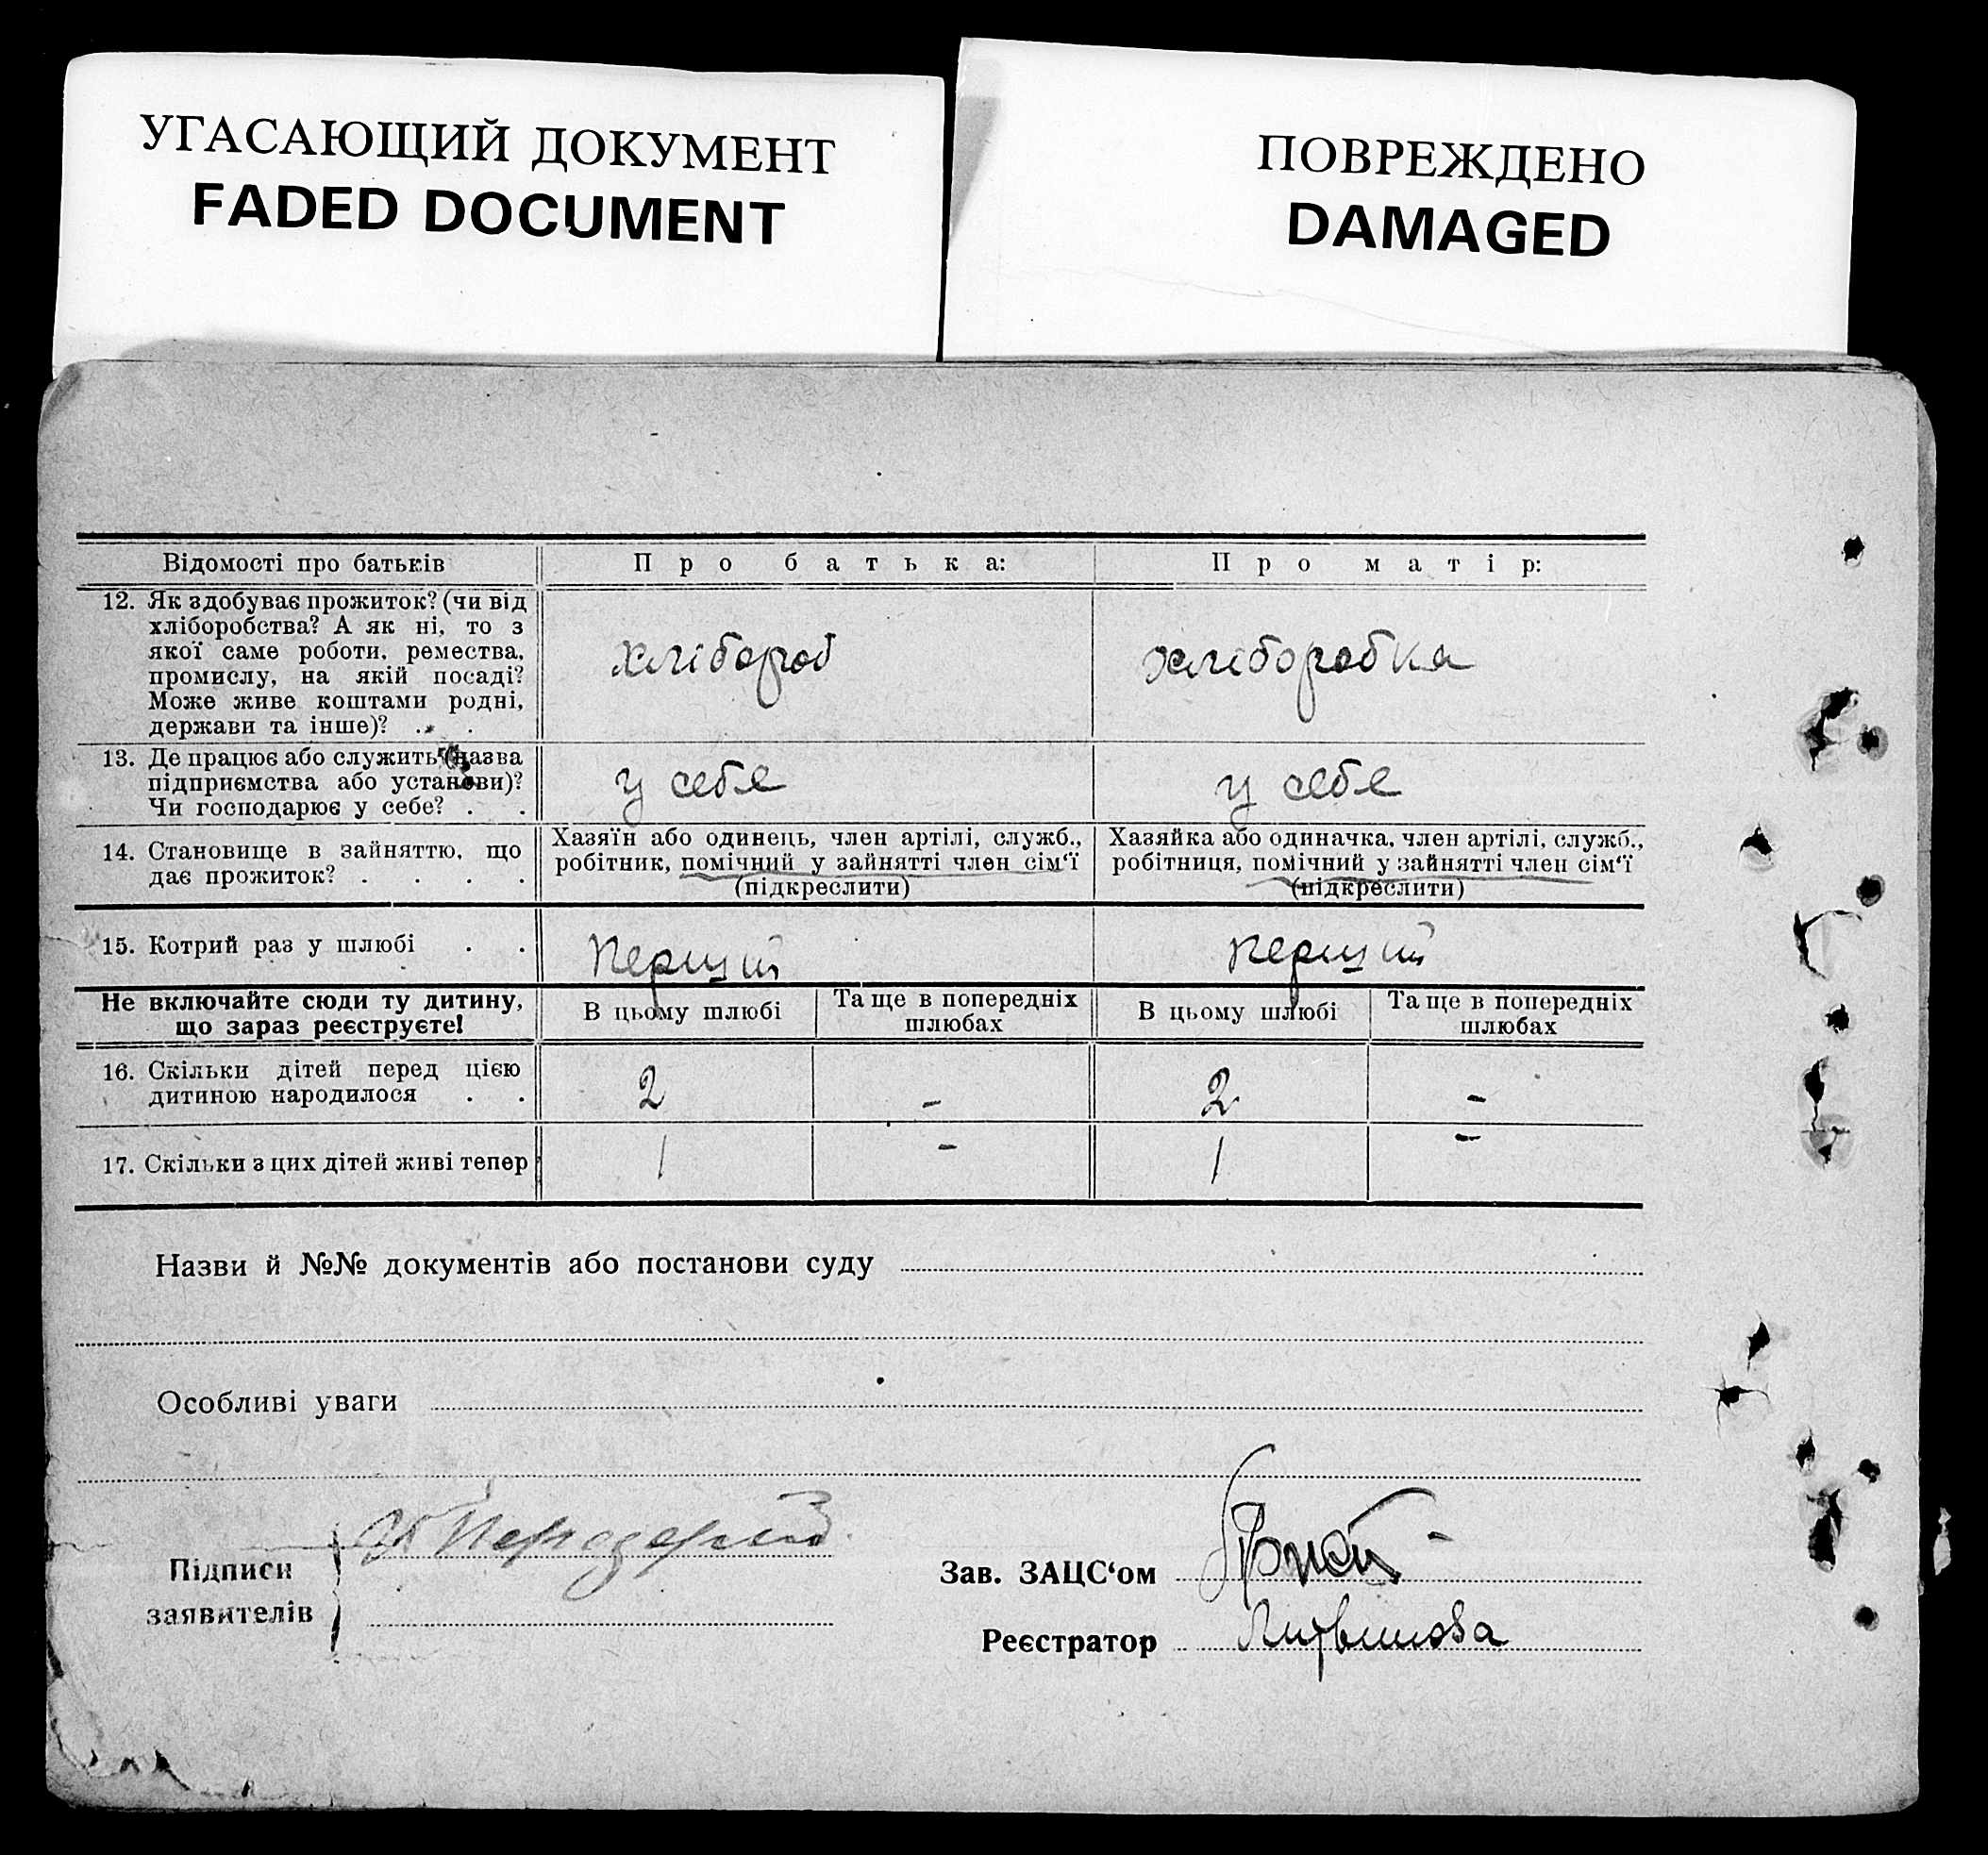 УГАСАЮЩИЙ ДОКУМЕНТ
FADED DOCUMENT
ПОВРЕЖДЕНО
DAMAGED
Відомості про батьків
Про батька:
Про матір:
12. Як здобуває прожиток? (чи від
хліборобства? А як ні, то з
якої саме роботи, ремества,
промислу, на якій посаді?
Може живе коштами родні,
держави та інше)? . .
хлібороб
хліборобка
13. Де працює або служить (назва
підприємства або установи)?
Чи господарює у себе? . .
у себе
у себе
14. Становище в зайняттю, що
дає прожиток? . . . .
Хазяїн або одинець, член артілі, служб.,
робітник, помічний у зайнятті член сім‘ї
(підкреслити)
Хазяйка або одиначка, член артілі, служб.,
робітниця, помічний у зайнятті член сім‘ї
(підкреслити)
15. Котрий раз у шлюбі . .
перший
перший
Не включайте сюди ту дитину,
що зараз реєструєте!
В цьому шлюбі
Та ще в попередніх
шлюбах
В цьому шлюбі
Та ще в попередніх
шлюбах
16. Скільки дітей перед цією
дитиною народилося . .
2
-
2
-
17. Скільки з цих дітей живі тепер
1
-
1
-
Назви й №№ документів або постанови суду
Особливі уваги
Підписи
заявителів
Зав. ЗАЦС‘ом
Реєстратор
Литвинова